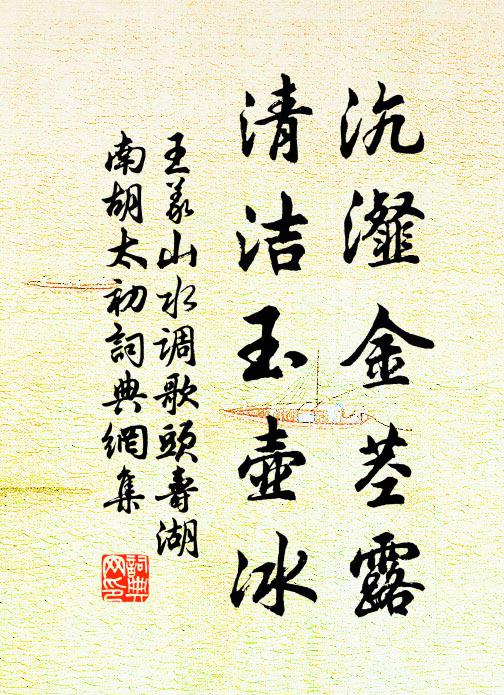 沆瀣金茎露
清洁玉壶冰
王义山水调歌头寿湖
南胡太初詞典網集
詞典网印